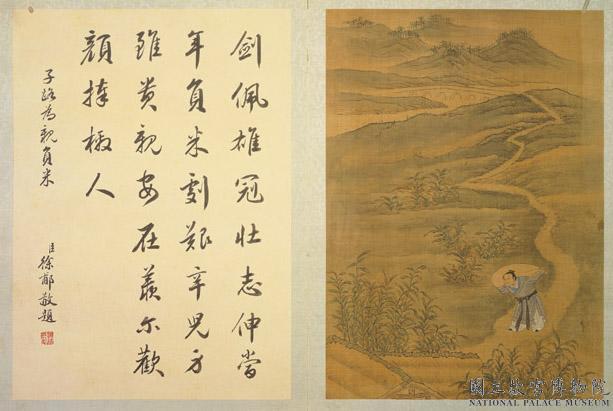 劍佩雄冠壯志伸當
年負米劇艱辛兒方
雖貴親安在羨爾歡
顏捧檄人
子路為親負米
臣徐郙敬題
國立故宮博物院
NATIONAL PALACE MUSEUM